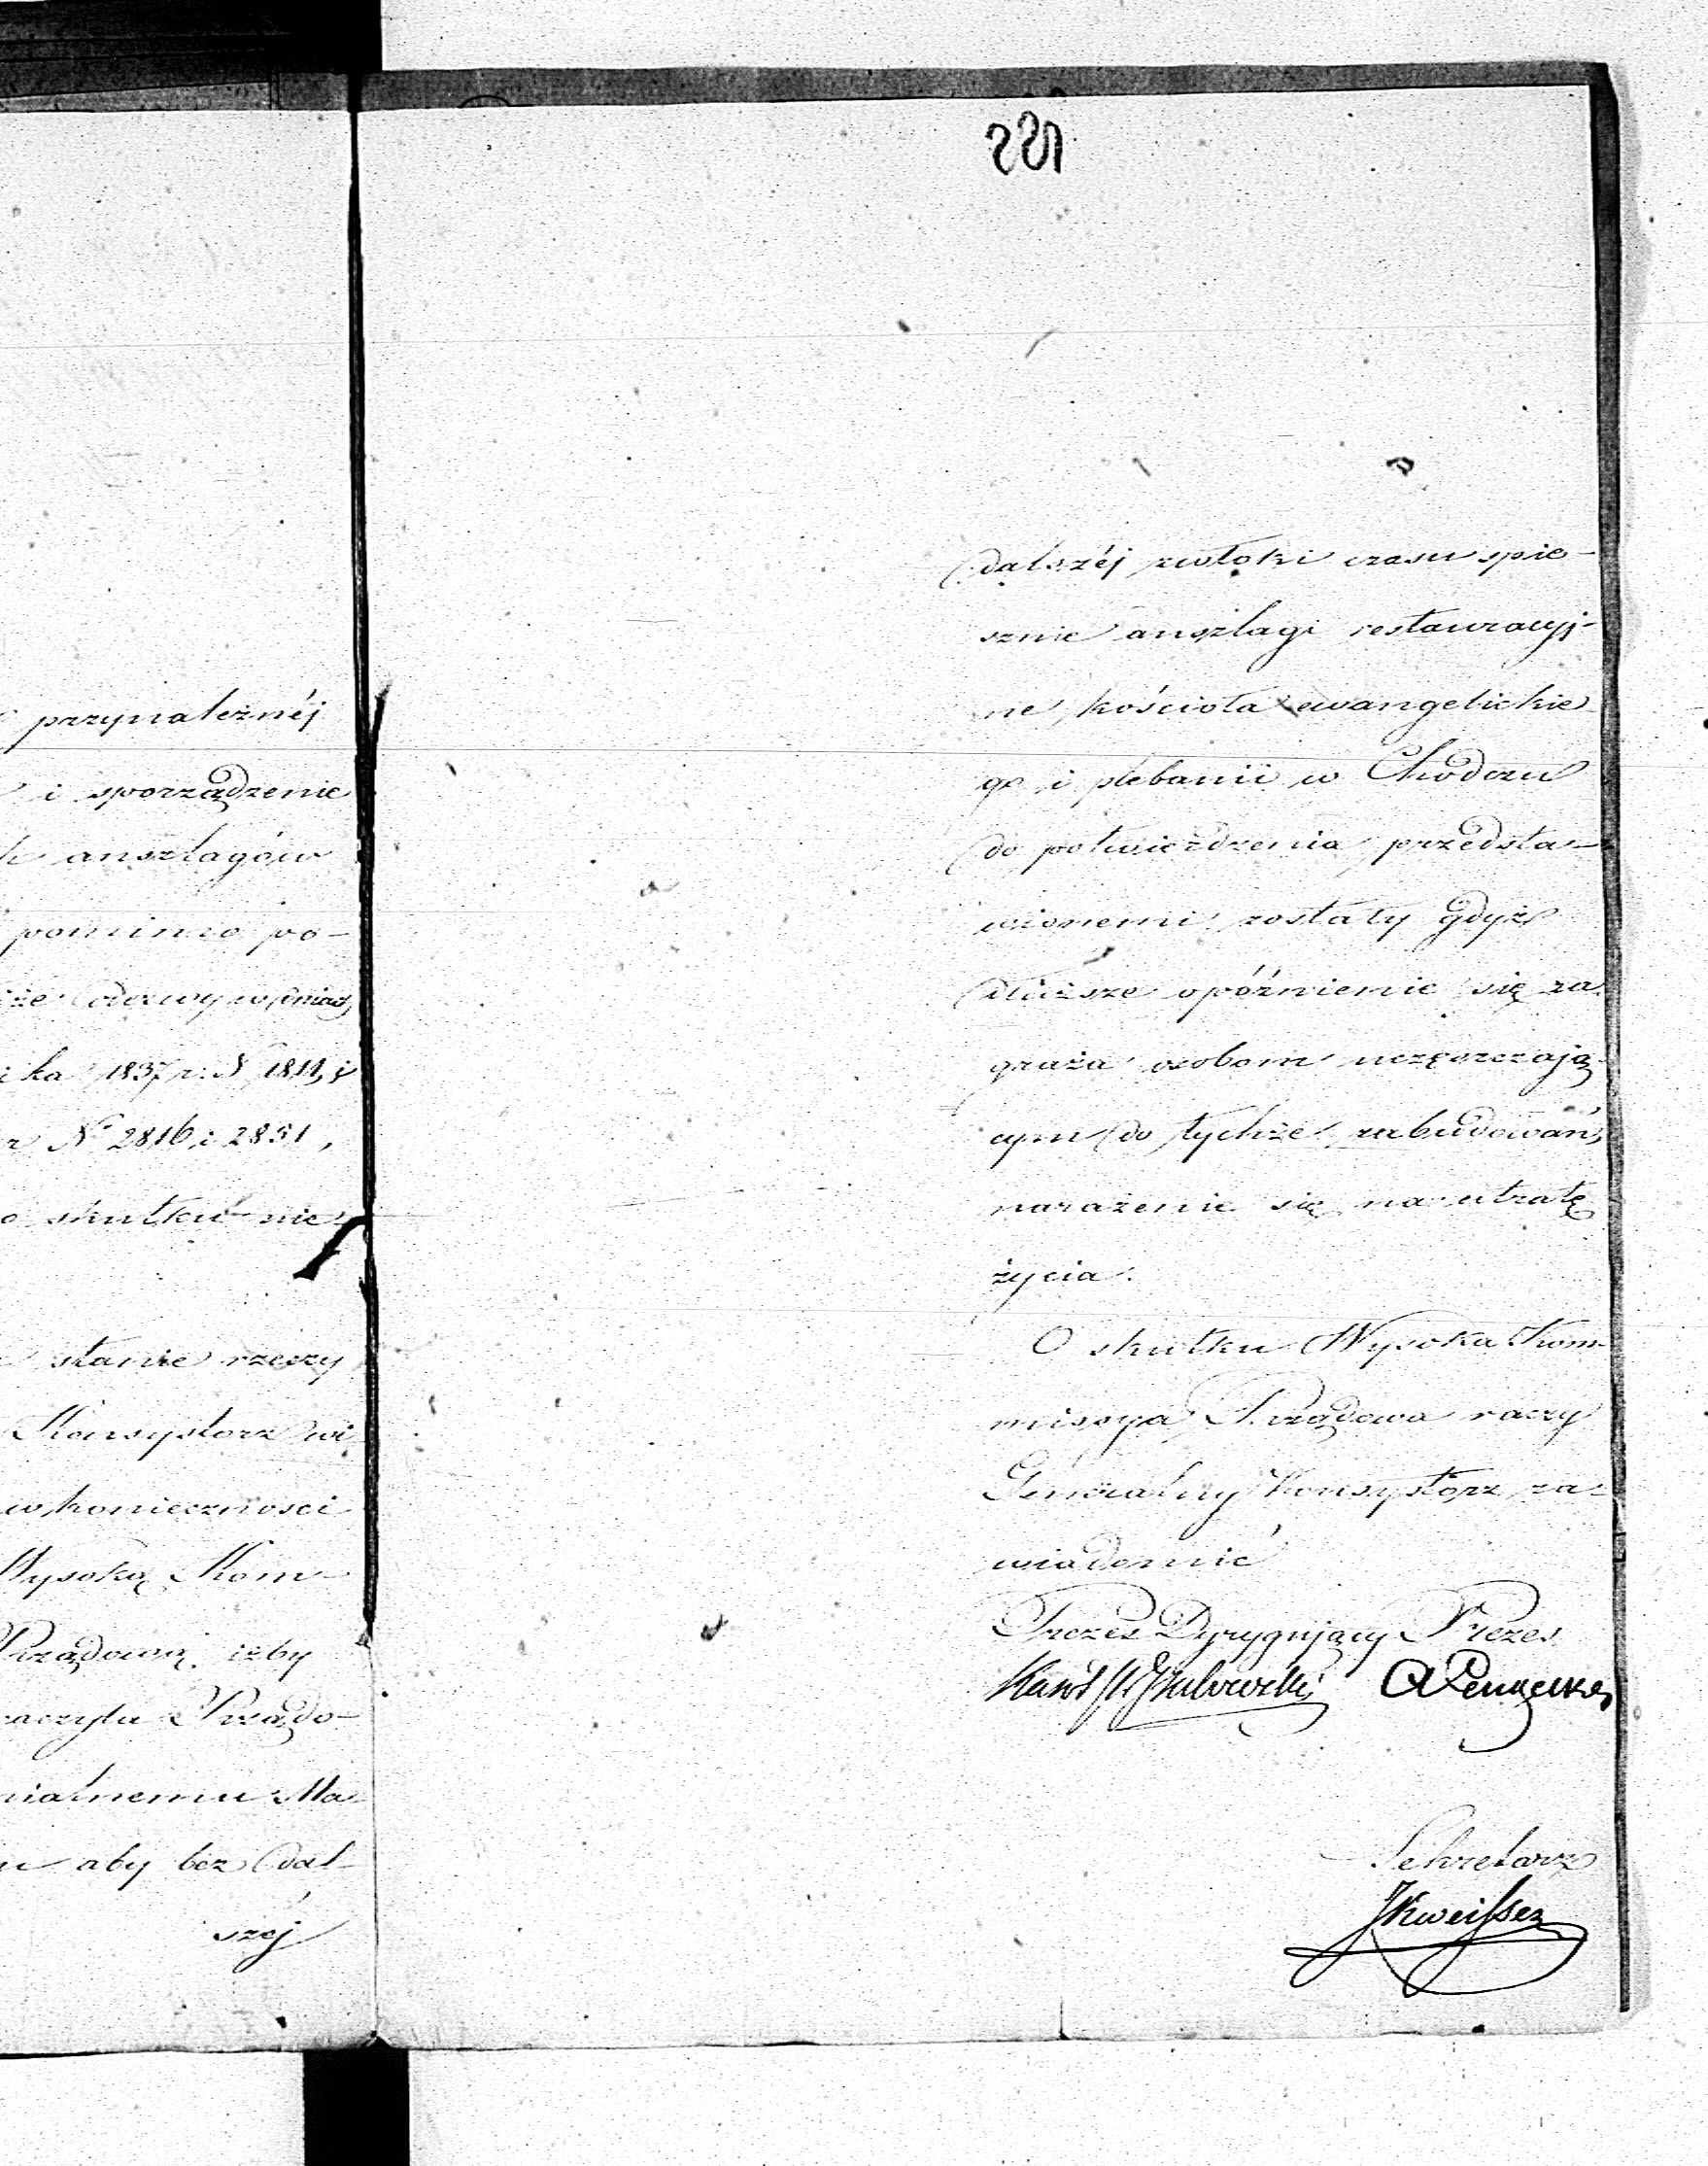 221
przynależnéj
i sporządzenie
anszlagów
pomimo po-
że odezwy w dniach
ika 1837 r. N 1811, i
r N° 2816 i 2851,
o skutku nie
stanie rzeczy
Konsystorz wi
w konieczności
Wysoką Kom-
Rządową, iżby
raczyła Rządo-
nialnemu Ma-
u aby bez dal-
széj
dalszéj zwłoki czasu spie-
sznie anszlagi restauracyj-
ne kościoła ewangelickie
go i plebanii w Chodczu
do potwierdzenia przedsta-
wionemi zostały gdyż
dłuższe opóźnienie się za
graża osobom uczęszczają-
cym do tychże zabudowań,
narażenie się na utratę
życia.
O skutku Wysoka Kom-
missya Rządowa raczy
Generalny Konsystorz za-
wiadomić
Prezes Dyrygujący Prezes
Sekretarz